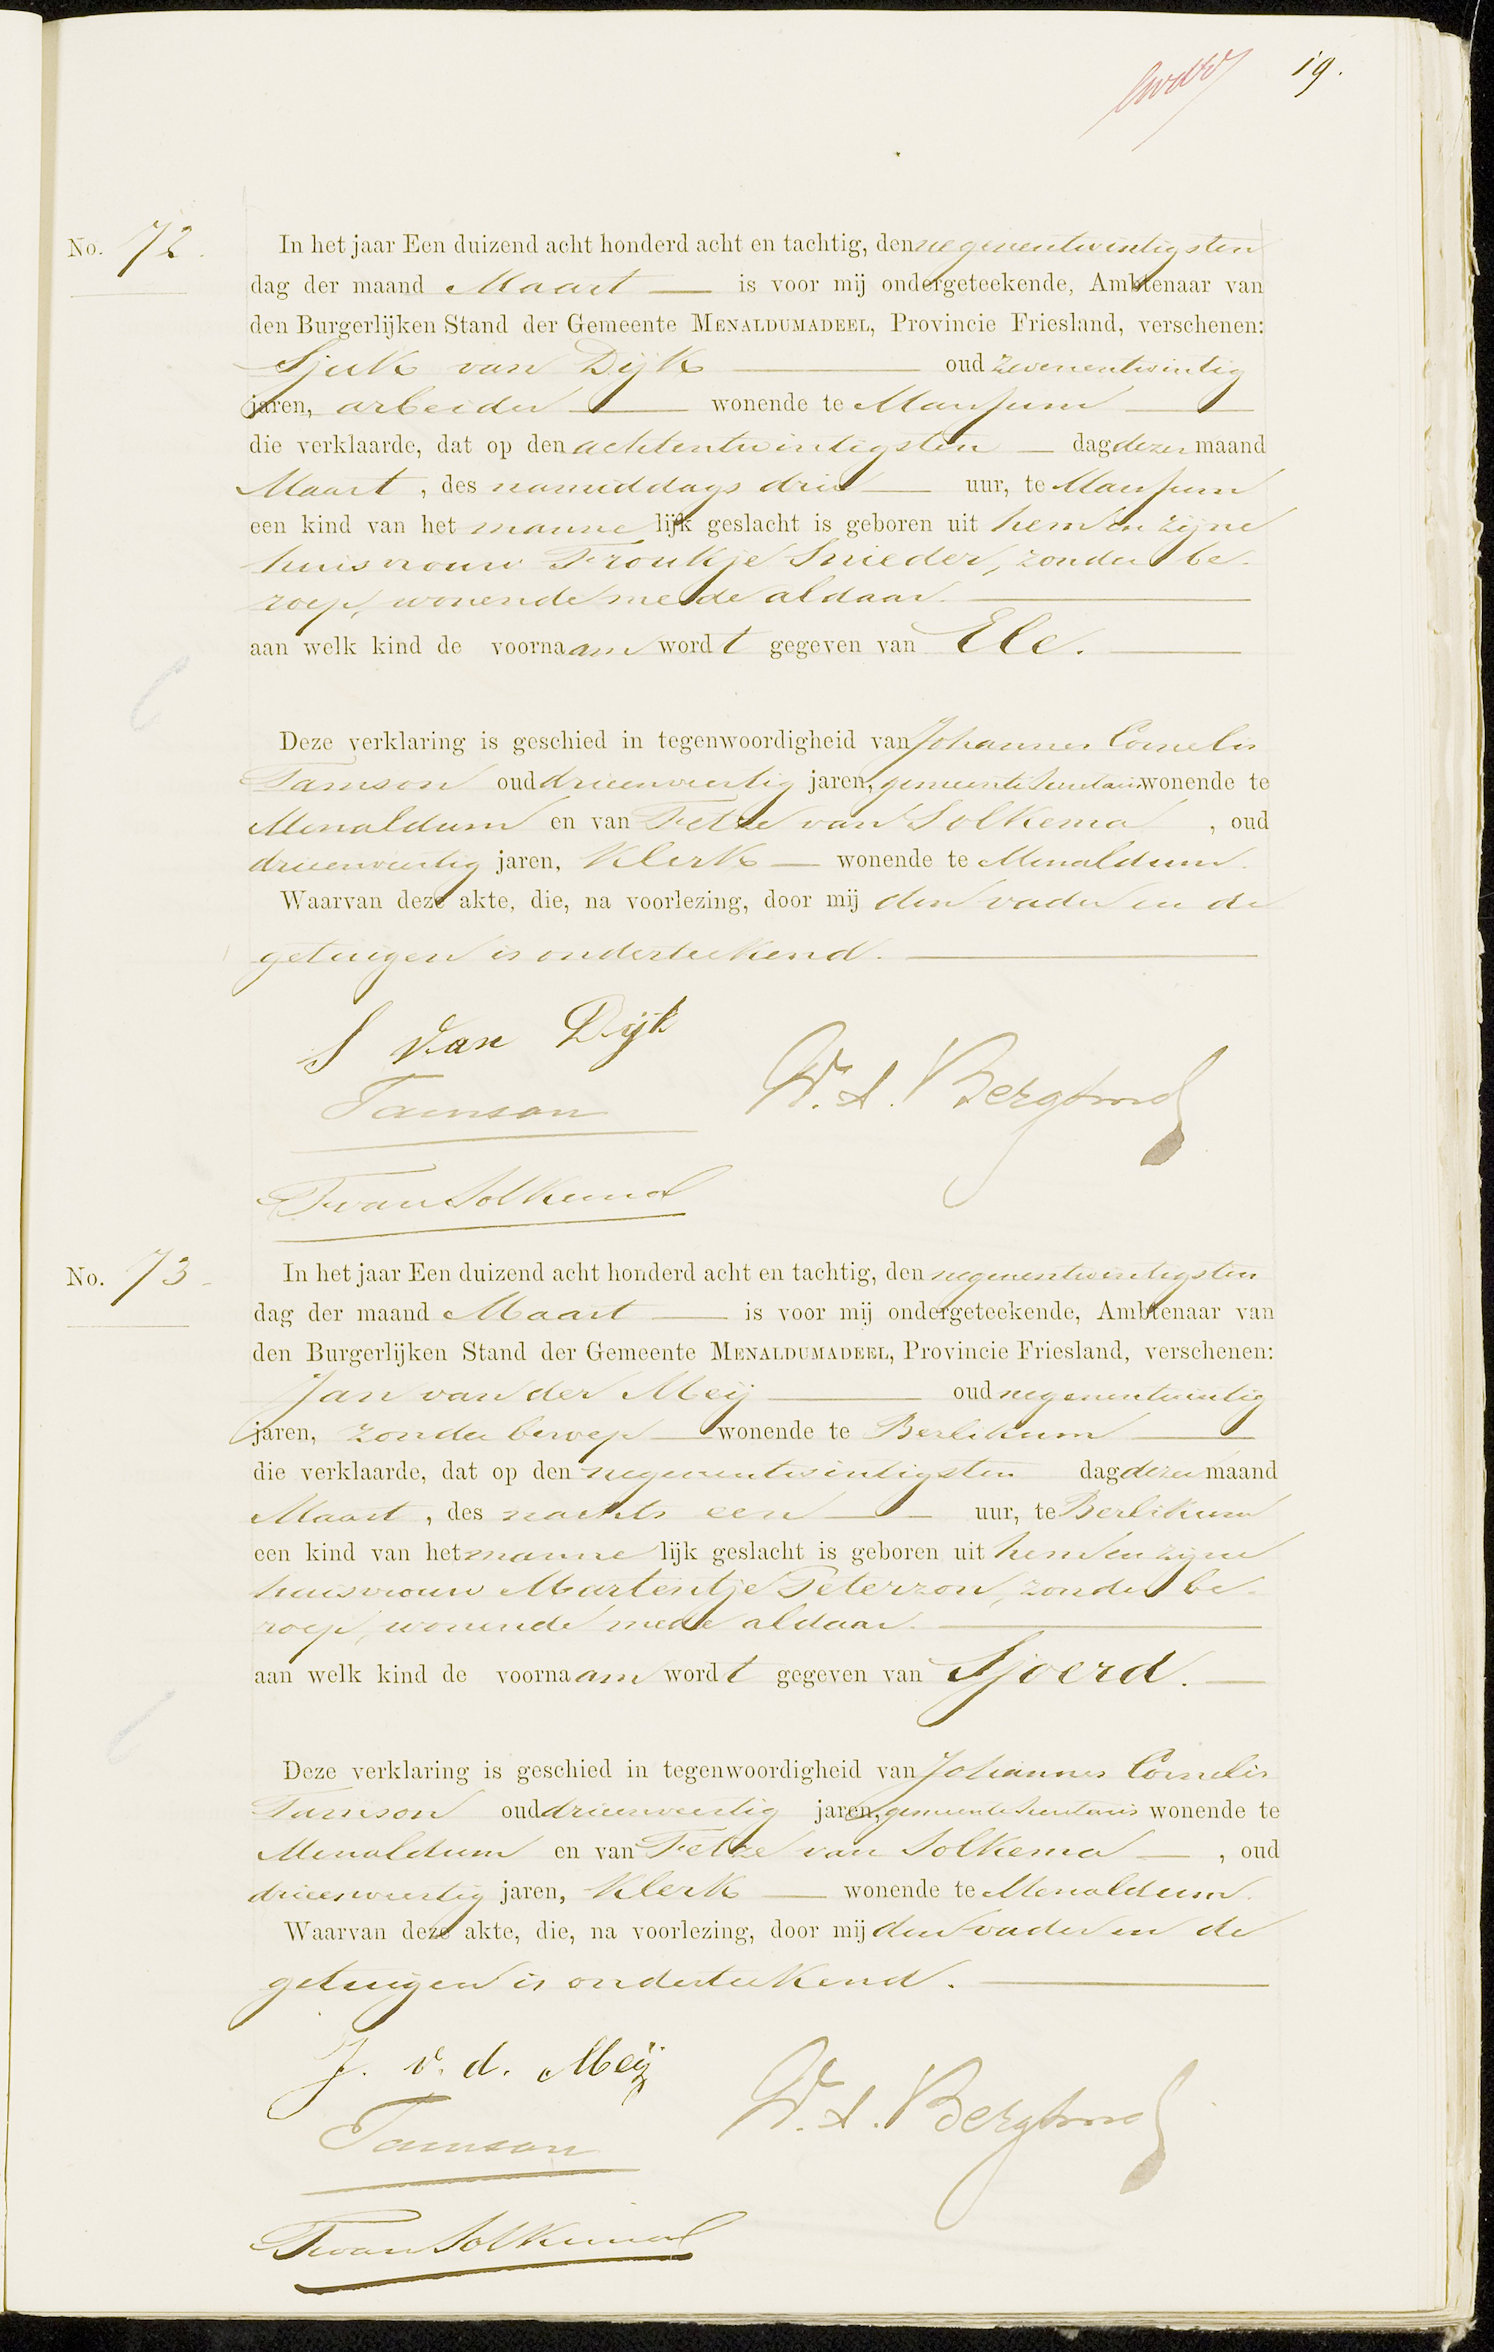 19.
No. 72.
In het jaar Een duizend acht honderd acht en tachtig, den negenentwintigsten
dag der maand Maart — is voor mij ondergeteekende, Ambtenaar van
den Burgerlijken Stand der Gemeente MENALDUMADEEL, Provincie Friesland, verschenen:
Sjuk van Dijk — oud zevenentwintig
jaren, arbeider — wonende te Marssum —
die verklaarde, dat op den achtentwintigsten — dag dezer maand
Maart, des namiddags drie — uur, te Marssum
een kind van het manne lijk geslacht is geboren uit hem en zijne
huisvrouw Froukje Snieder, zonder be-
roep, wonende mede aldaar. —
aan welk kind de voornaam wordt gegeven van Ele. —
Deze verklaring is geschied in tegenwoordigheid van Johannes Cornelis
Tamson oud drieenveertig jaren, gemeente secretaris wonende te
Menaldum en van Fetze van Solkema, oud
drieenveertig jaren, Klerk — wonende te Menaldum.
Waarvan deze akte, die, na voorlezing, door mij den vader en de
getuigen is onderteekend. —
S van Dijk
Tamson
W. A. Bergsma
F van Solkema
No. 73.
In het jaar Een duizend acht honderd acht en tachtig, den negenentwintigsten
dag der maand Maart — is voor mij ondergeteekende, Ambtenaar van
den Burgerlijken Stand der Gemeente MENALDUMADEEL, Provincie Friesland, verschenen:
Jan van der Meij — oud negenentwintig
jaren, zonder beroep — wonende te Berlikum —
die verklaarde, dat op den negenentwintigsten dag dezer maand
Maart, des nachts een — uur, te Berlikum
een kind van het manne lijk geslacht is geboren uit hem en zijne
huisvrouw Martentje Peterzon, zonder be-
roep, wonende mede aldaar. —
aan welk kind de voornaam wordt gegeven van Sjoerd. —
Deze verklaring is geschied in tegenwoordigheid van Johannes Cornelis
Tamson oud drieenveertig jaren, gemeente secretaris wonende te
Menaldum en van Fetze van Solkema —, oud
drieenveertig jaren, Klerk — wonende te Menaldum.
Waarvan deze akte, die, na voorlezing, door mij den vader en de
getuigen is onderteekend. —
J. v. d. Meij
Tamson
W. A. Bergsma
F van Solkema